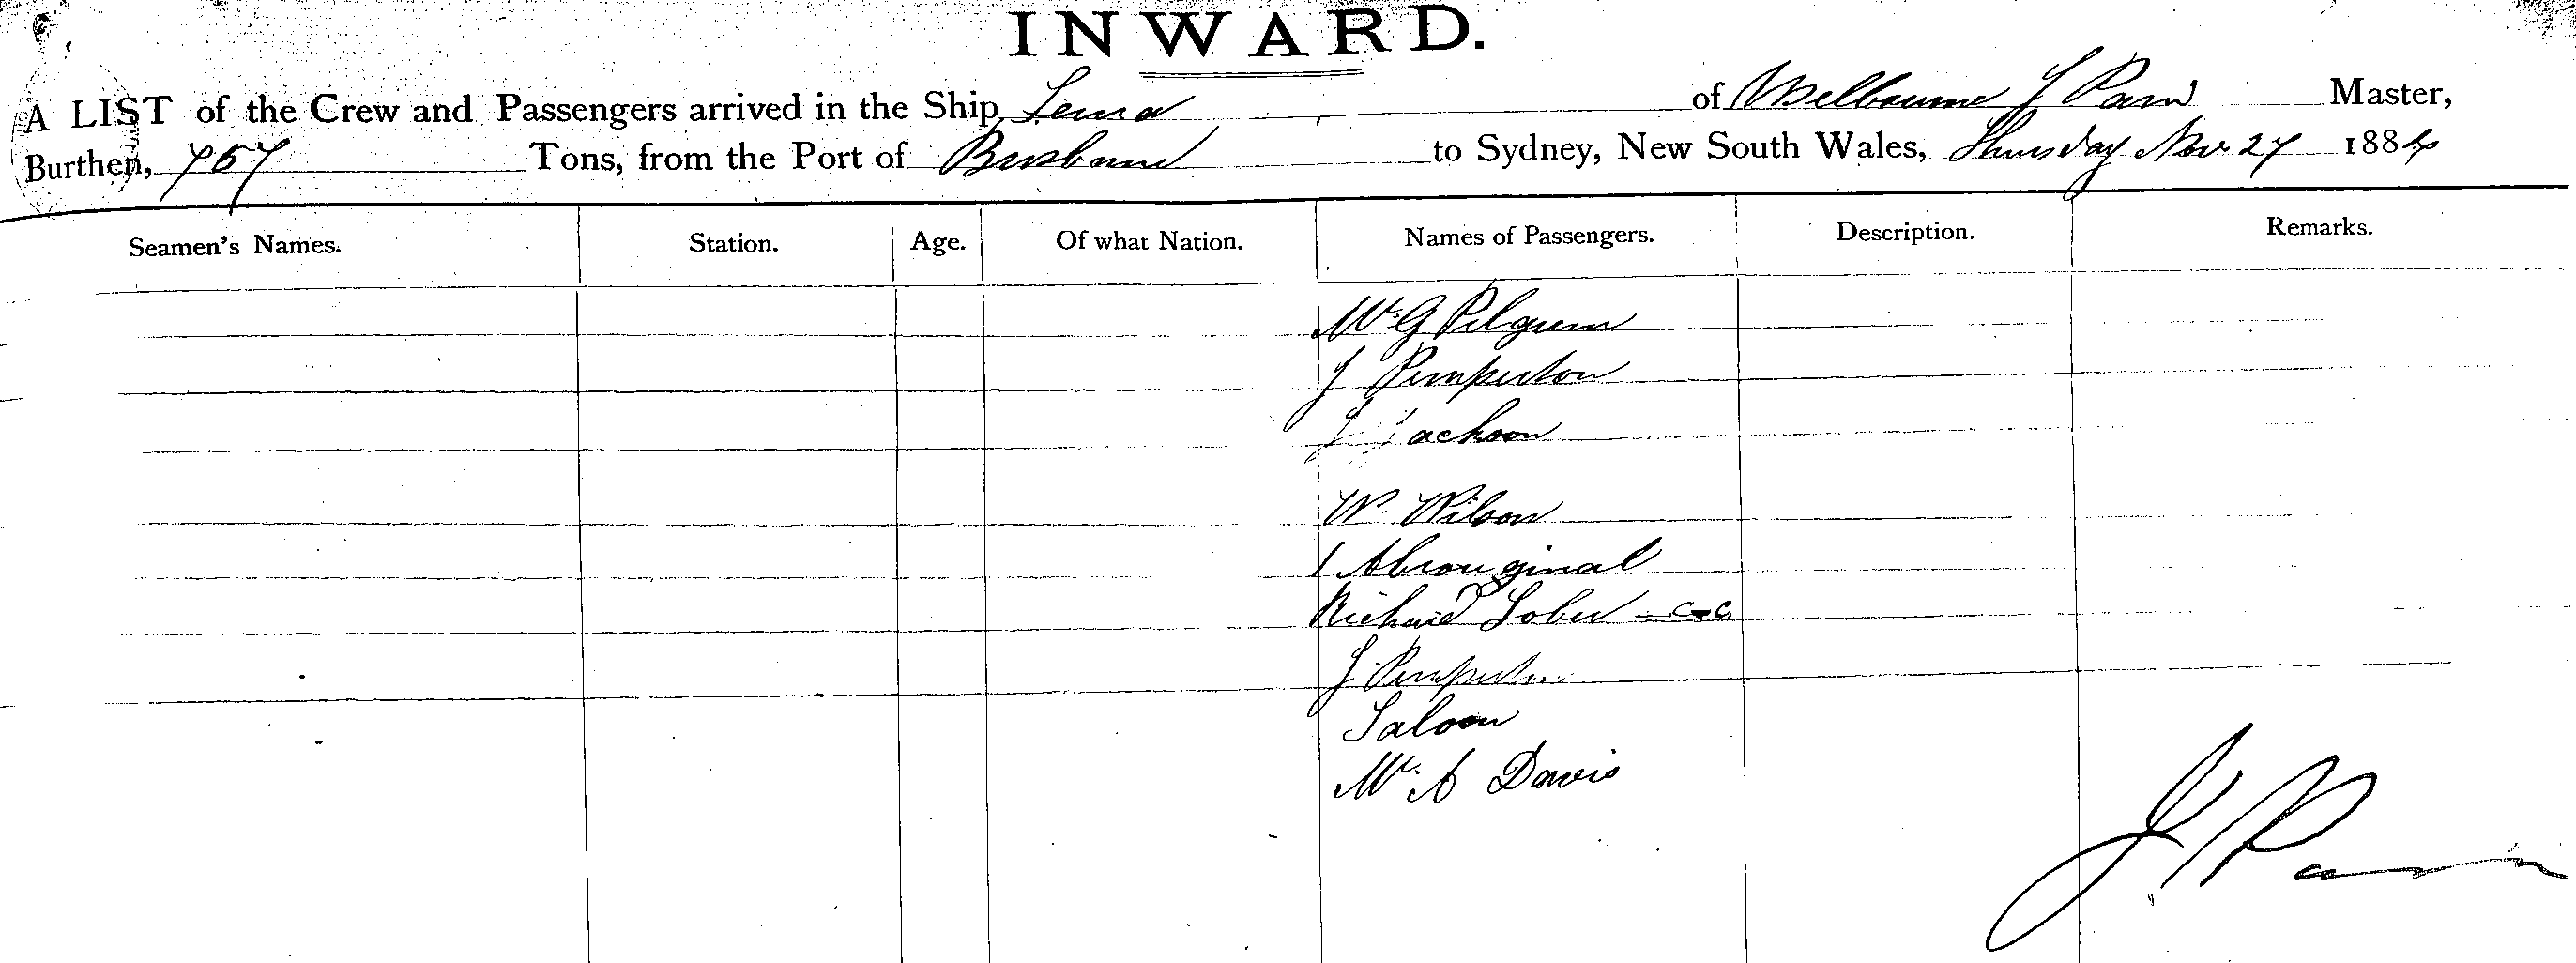 INWARD.
A LIST of the Crew and Passengers arrived in the Ship, of Melbourne J Master,
Burthen, 757 Tons, from the Port of Brisbane to Sydney, New South Wales, Thursday Nov 27 1884
Seamen's Names. Station. Age. Of what Nation. Names of Passengers. Description. Remarks.
Mr G Pilgrim
J Pimperton
J Jackson
W. Wilson
1 Abrouginal
Richard
J
Saloon
Mr A Davis
J